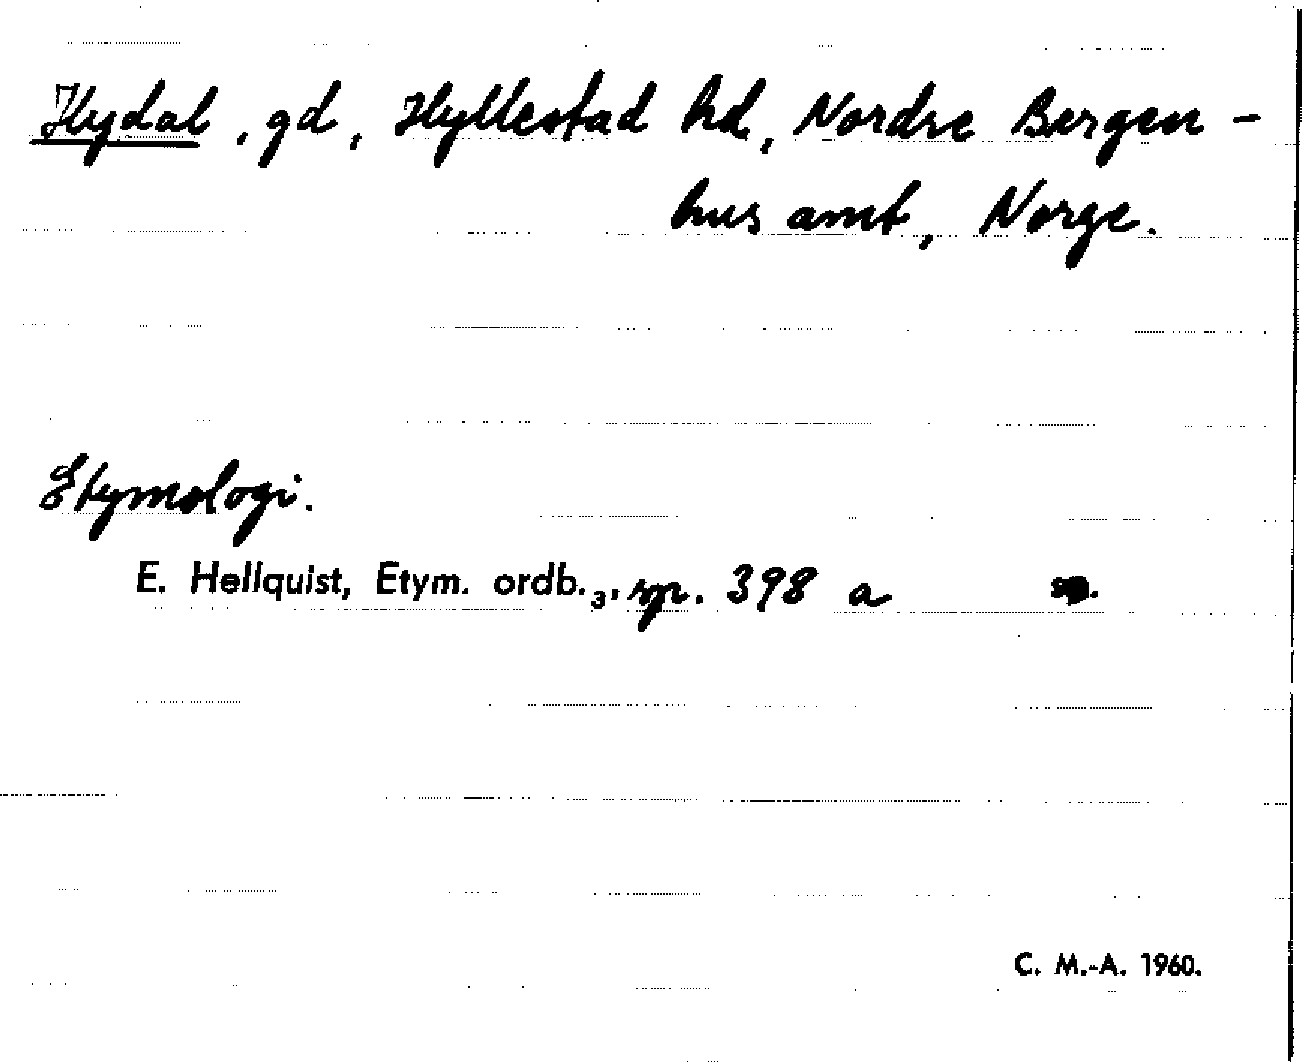 Hydal, gd, Hyllestad hd, Nordre Bergen-
hus amt, Norge.
Etymologi.
E. Hellquist, Etym. ordb.₃, sp. 398 a
C. M.-A. 1960.